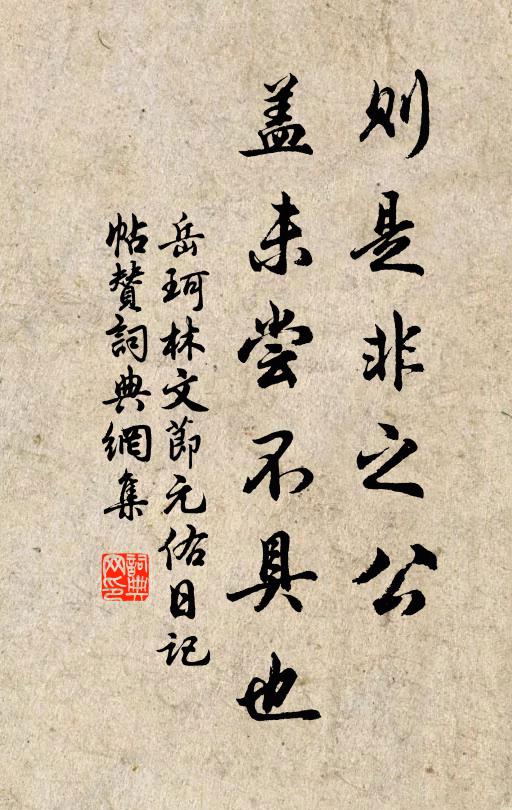 则是非之公
盖未尝不具也
岳珂林文節元佑日记
帖贊詞典網集
詞典
网印